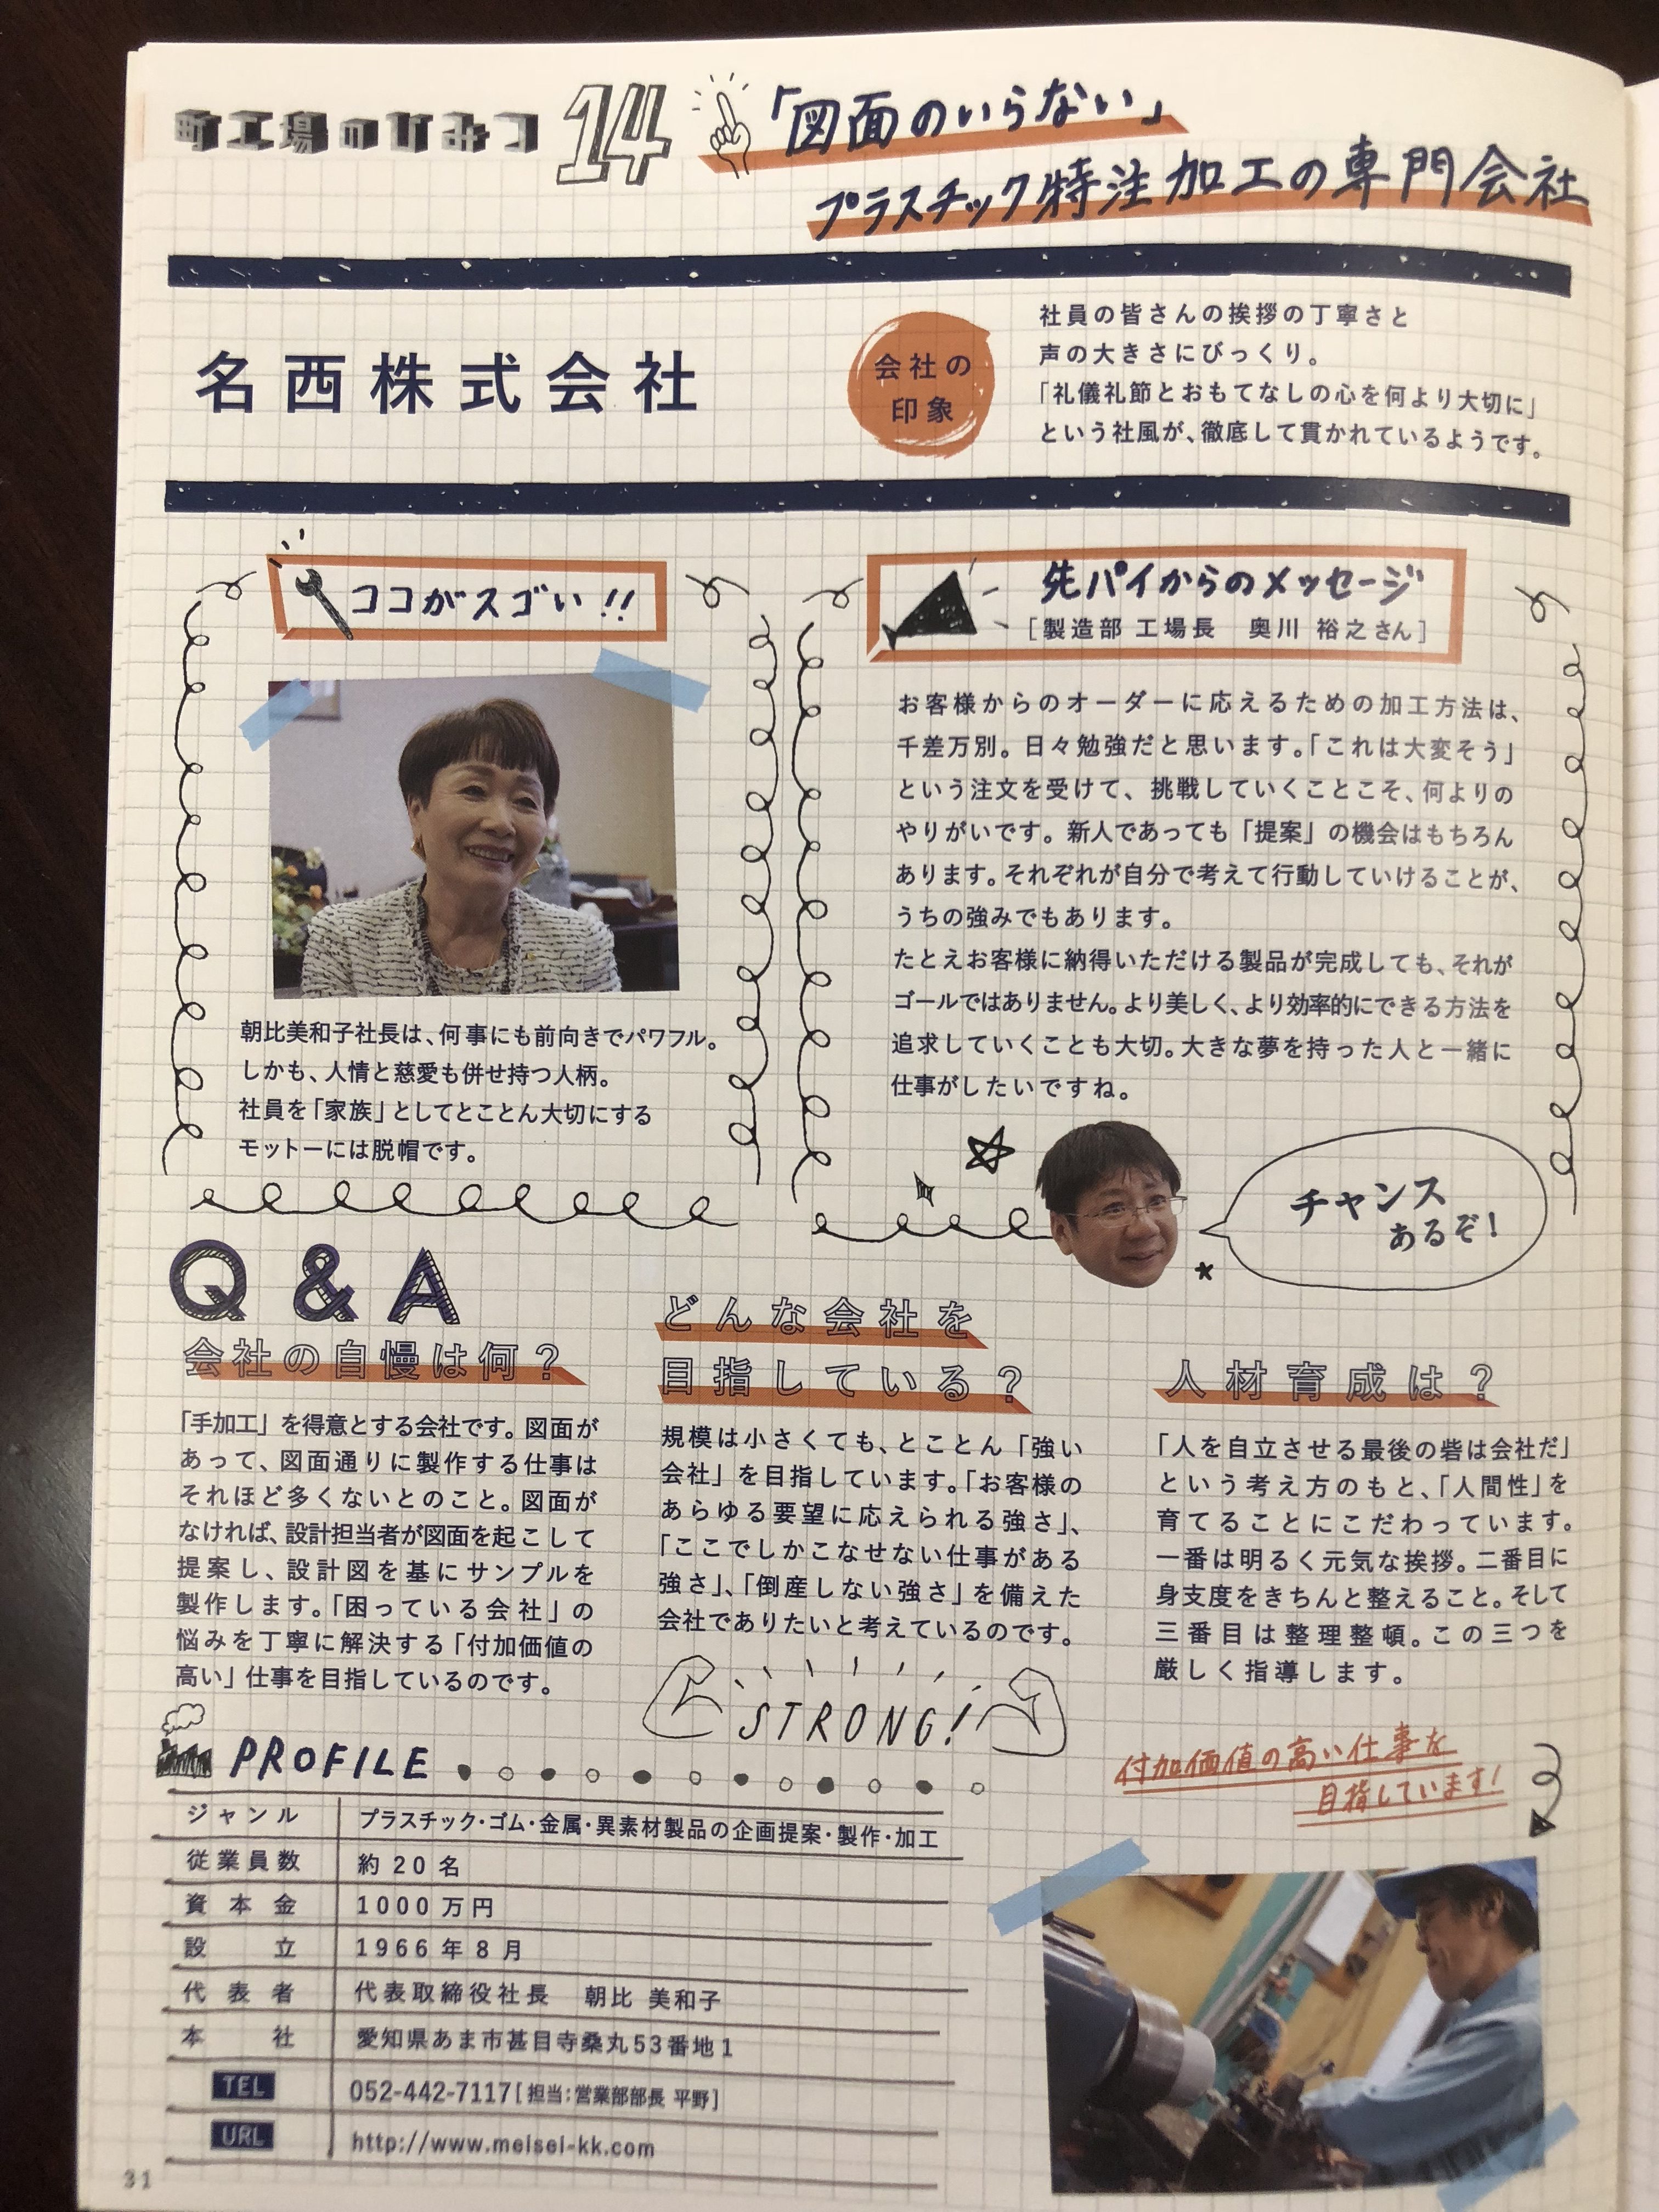 町工場のひみつ 14
「図面のいらない」
プラスチック特注加工の専門会社
名西株式会社
会社の
印象
社員の皆さんの挨拶の丁寧さと
声の大きさにびっくり。
「礼儀礼節とおもてなしの心を何より大切に」
という社風が、徹底して貫かれているようです。
ココがスゴい!!
朝比美和子社長は、何事にも前向きでパワフル。
しかも、人情と慈愛も併せ持つ人柄。
社員を「家族」としてとことん大切にする
モットーには脱帽です。
先パイからのメッセージ
[製造部 工場長 奥川 裕之さん]
お客様からのオーダーに応えるための加工方法は、
千差万別。日々勉強だと思います。「これは大変そう」
という注文を受けて、挑戦していくことこそ、何よりの
やりがいです。新人であっても「提案」の機会はもちろん
あります。それぞれが自分で考えて行動していけることが、
うちの強みでもあります。
たとえお客様に納得いただける製品が完成しても、それが
ゴールではありません。より美しく、より効率的にできる方法を
追求していくことも大切。大きな夢を持った人と一緒に
仕事がしたいですね。
チャンス
あるぞ!
Q & A
会社の自慢は何?
「手加工」を得意とする会社です。図面が
あって、図面通りに製作する仕事は
それほど多くないとのこと。図面が
なければ、設計担当者が図面を起こして
提案し、設計図を基にサンプルを
製作します。「困っている会社」の
悩みを丁寧に解決する「付加価値の
高い」仕事を目指しているのです。
どんな会社を
目指している?
規模は小さくても、とことん「強い
会社」を目指しています。「お客様の
あらゆる要望に応えられる強さ」、
「ここでしかこなせない仕事がある
強さ」、「倒産しない強さ」を備えた
会社でありたいと考えているのです。
STRONG!
人材育成は?
「人を自立させる最後の砦は会社だ」
という考え方のもと、「人間性」を
育てることにこだわっています。
一番は明るく元気な挨拶。二番目に
身支度をきちんと整えること。そして
三番目は整理整頓。この三つを
厳しく指導します。
付加価値の高い仕事を
目指しています!
PROFILE
ジャンル プラスチック・ゴム・金属・異素材製品の企画提案・製作・加工
従業員数 約20名
資本金 1000万円
設立 1966年8月
代表者 代表取締役社長 朝比 美和子
本社 愛知県あま市甚目寺桑丸53番地1
TEL 052-442-7117[担当:営業部部長 平野]
URL http://www.meisei-kk.com
31